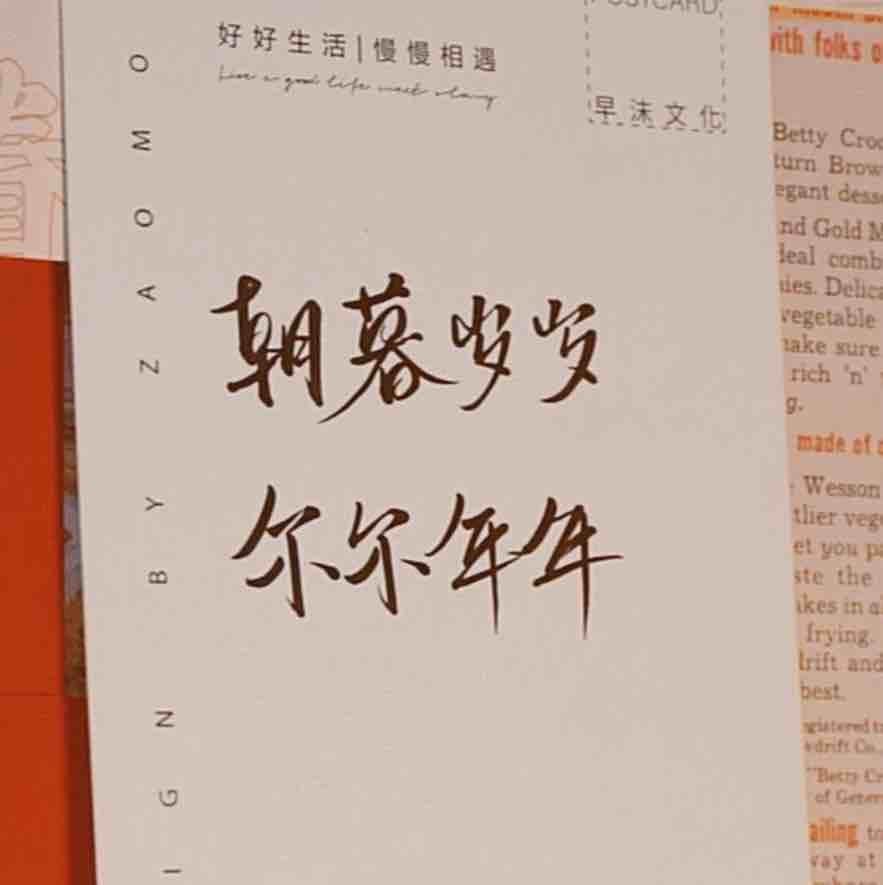 好好生活|慢慢相遇
Live a good life meet slowly
POSTCARD
早沫文化
朝暮岁岁
尔尔年年
IGN BY ZAOMO
with folks o
Betty Croc
turn Brow
egant dess
nd Gold M
deal comb
ies. Delica
vegetable
make sure
rich 'n'
g.
made of
Wesson
tlier veg
et you pa
ste the
akes in a
frying.
drift and
best.
egistered t
wdrift Co.,
"Betty Cr
of Gener
ailing to
way at
where